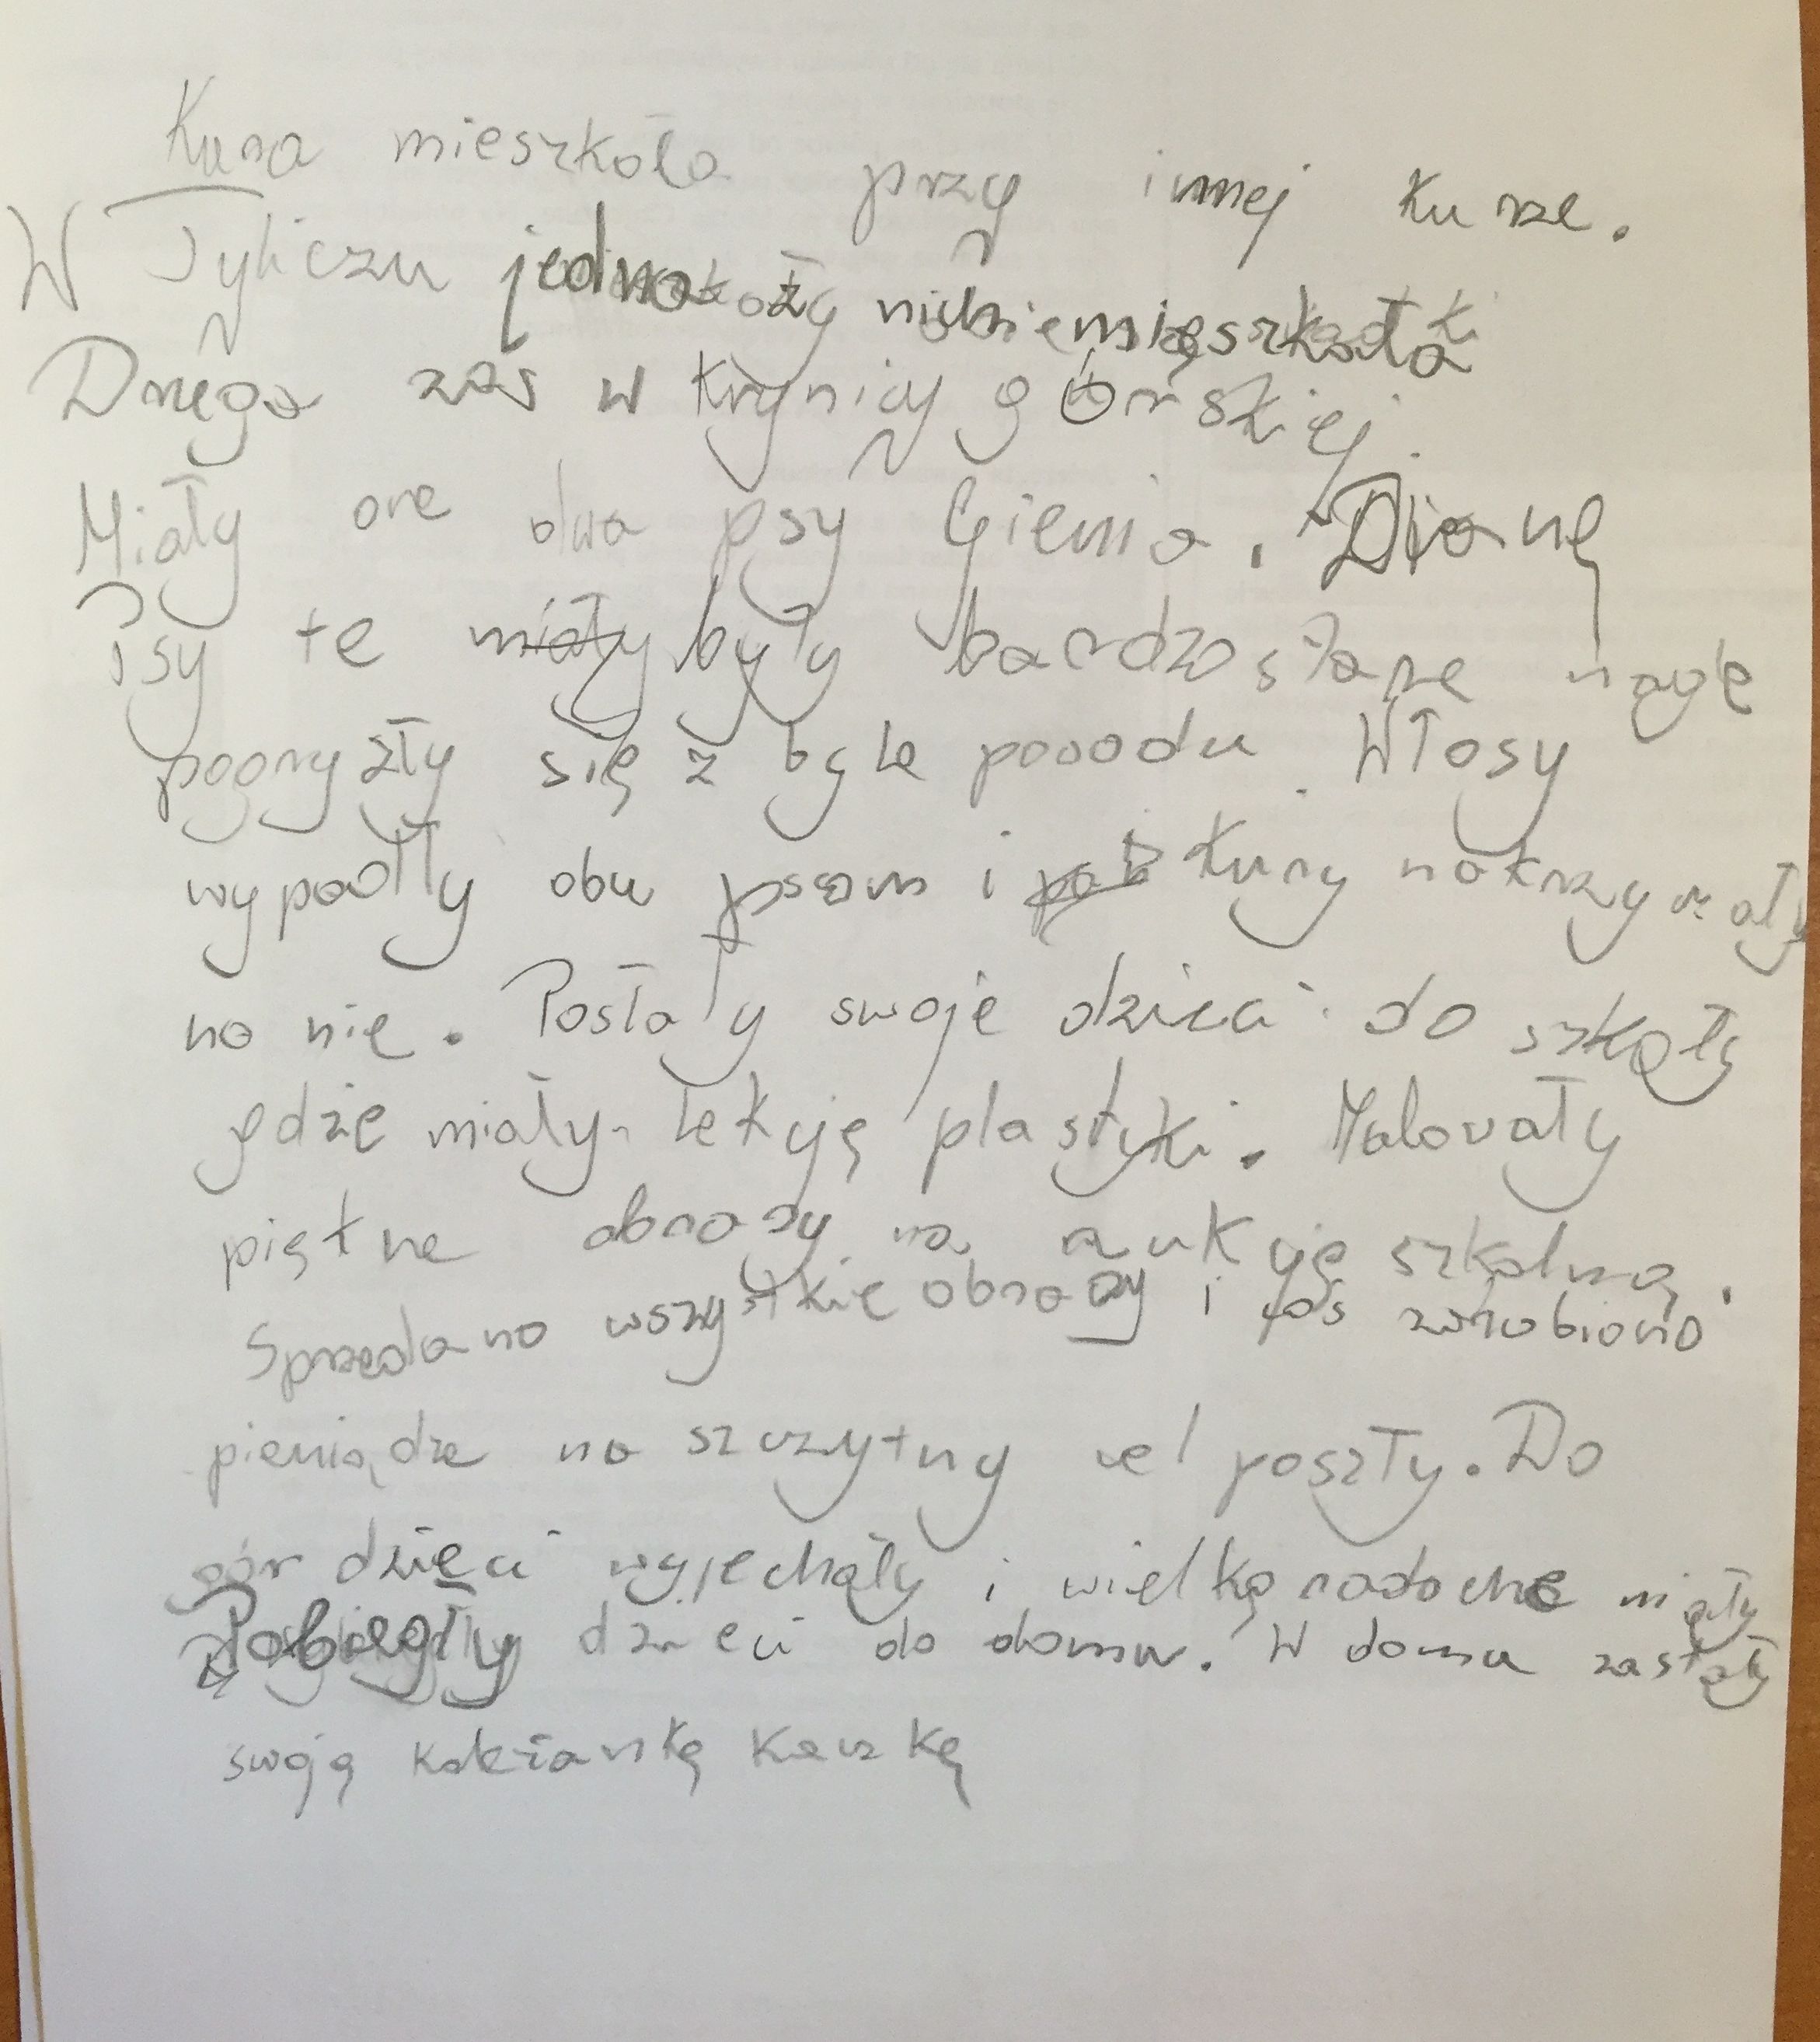 Kura mieszkała przy innej kurze.
W Tyliczu jedna mieszkała
Druga zaś w krynicy górskiej.
Miały one dwa psy Gienia i Dianę
Psy te miały były bardzo stare nagle
pogryzły się z byle powodu. Włosy
wypadły obu psom i kury nakrzyczały
na nie. Posłały swoje dzieci do szkoły
gdzie miały lekcję plastyki. Malowały
piękne obrazy na aukcję szkolną.
Sprzedano wszystkie obrazy i zarobiono
pieniądze na szczytny cel poszły. Do
gór dzieci wyjechały i wielką radochę miały
Pobiegły dzieci do domu. W domu zastały
swoją koleżankę kaczkę